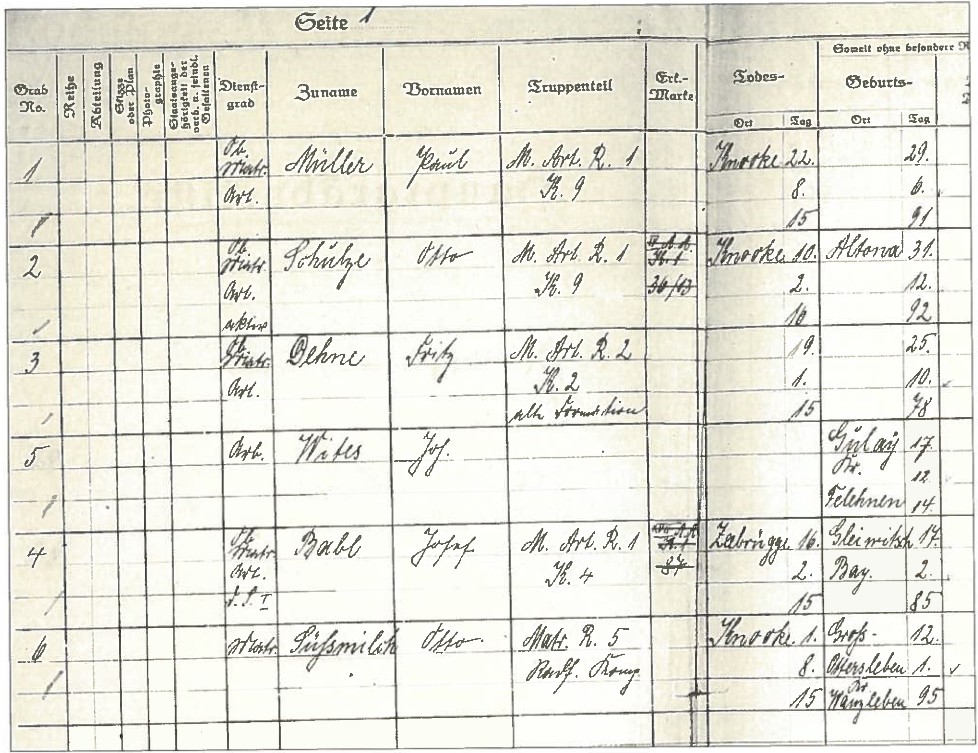 Seite 1
Soweit ohne besondere
Grab No. Reihe Abteilung Skizze oder Plan Photographie Staatsangehörigkeit der verb. u. feindl. Gefallenen Dienstgrad Zuname Vornamen Truppenteil Erk.-Marke Todes- Geburts-
Ort Tag Ort Tag
1 Ob. Müller Paul M. Art. R. 1 Knocke 22. 29.
Matr. Art. K. 9 8. 6.
15 91
2 Ob. Matr. Schulze Otto M. Art. R. 1 Knocke 10. Altona 31.
Art. K. 9 36/13 2. 12.
aktiv 16 92
3 Ob. Matr. Dehne Fritz M. Art. R. 2 19. 25.
Art. K. 2 1. 10.
alte Formation 15 78
5 Arb. Wites Joh. 17
Kr. 12
Filehnen 14.
4 Ob. Matr. Babl Josef M. Art. R. 1 K. 1 Zebrügge 16. Gleiwitsh 17.
Art. K. 4 87 2. Bay. 2.
d. S. I 15 85
6 Matr. Süßmilch Otto Matr. R. 5 Knocke 1. Groß- 12.
Radf. Komp. 8. Ostersleben 1.
15 Kr. Wanzleben 95